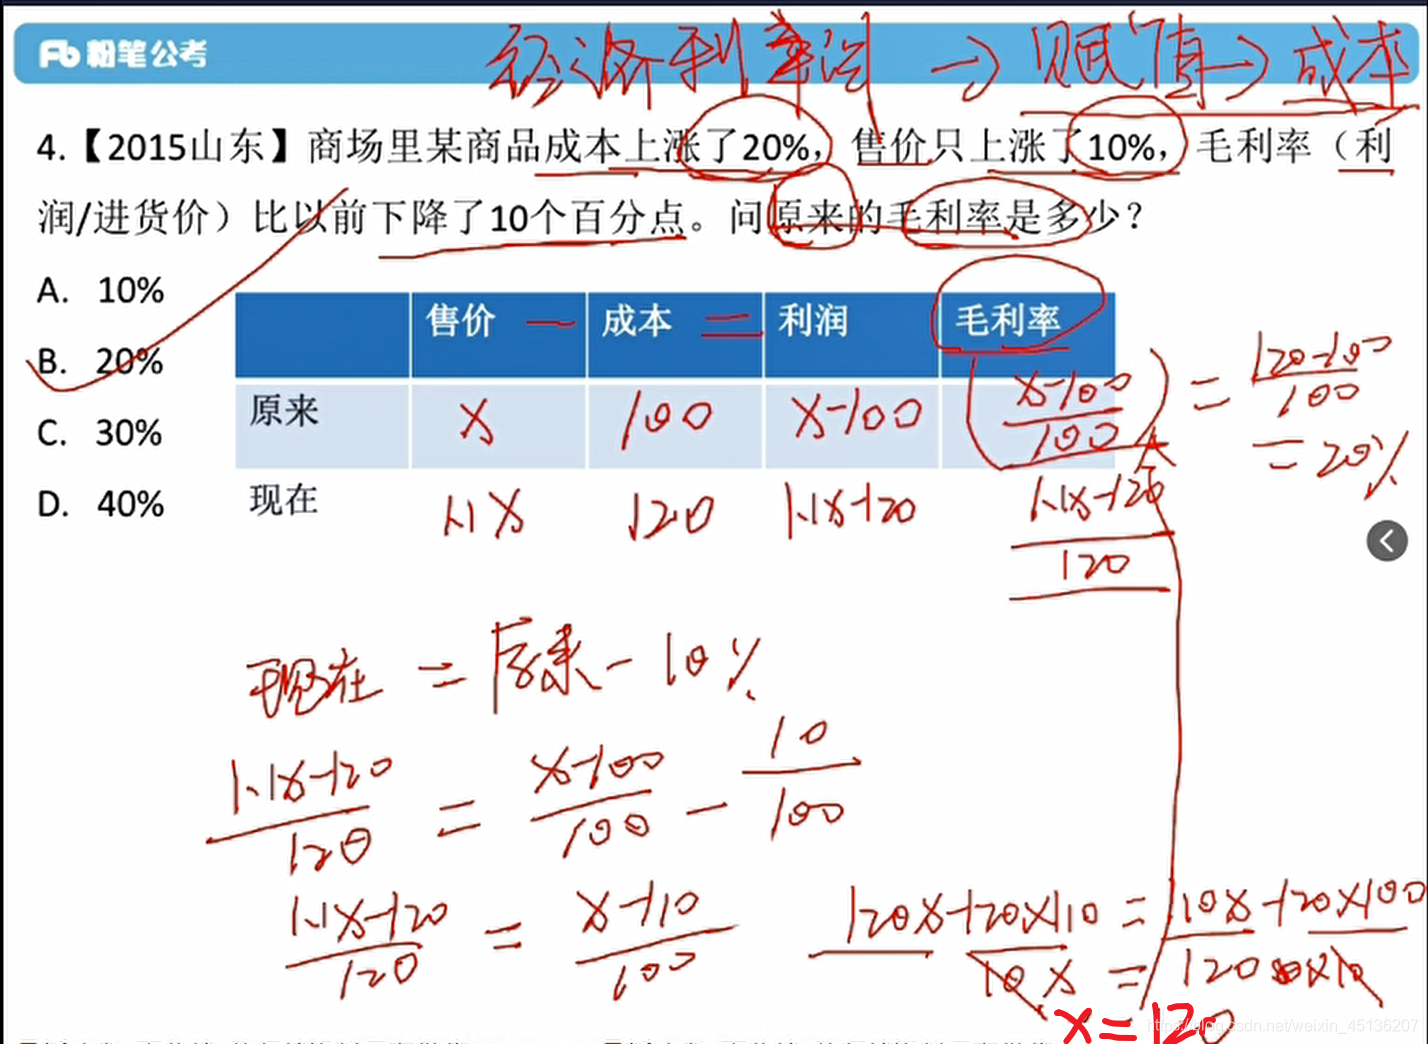 粉笔公考
经济利率润 → 赋值 → 成本
4.【2015山东】商场里某商品成本上涨了20%，售价只上涨了10%，毛利率（利
润/进货价）比以前下降了10个百分点。问原来的毛利率是多少？
A. 10%
B. 20%
C. 30%
D. 40%
售价 — 成本 = 利润 毛利率
原来 x 100 x-100 (x-100/100) = 120-100/100
= 20%
现在 1.1x 120 1.1x-120 1.1x-120/120
现在 = 原来 - 10%
1.1x-120/120 = x-100/100 - 10/100
1.1x-120/120 = x-110/100
120x-120×110 = 110x-120×100
10x = 1200
x=120
https://blog.csdn.net/weixin_45136207